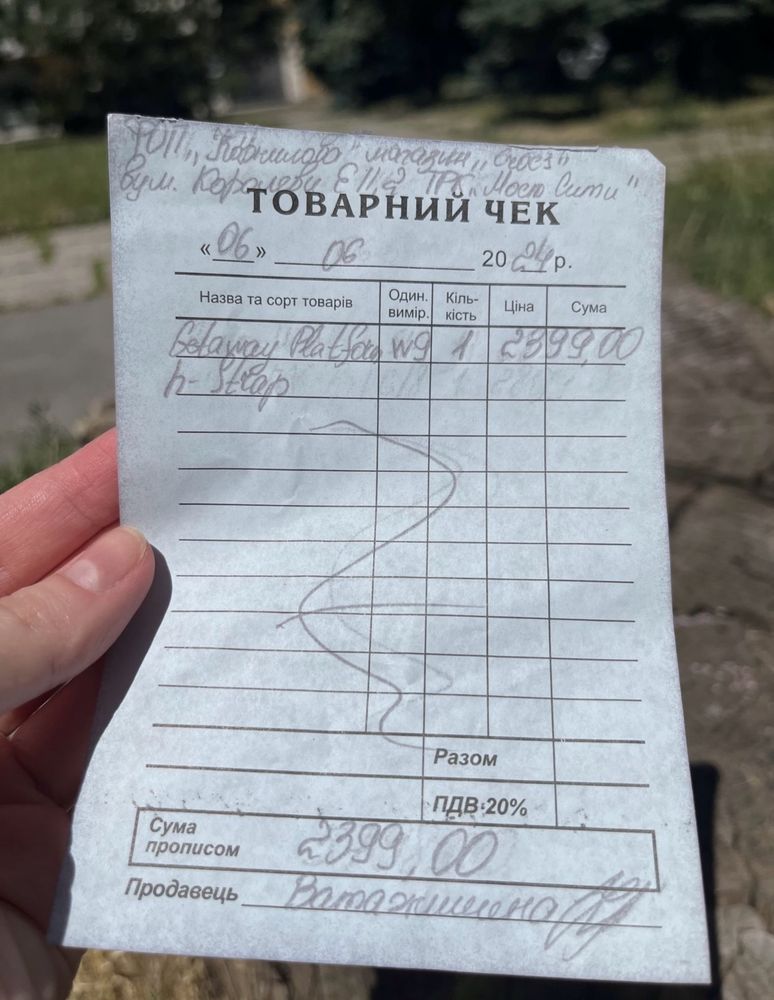 ФОП „Корнилова" магазин „Crocs"
вул. Королеви Є II, 2 ТРК „Мост Сити"
ТОВАРНИЙ ЧЕК
«06» 06 2024 р.
Назва та сорт товарів Один. вимір. Кіль-кість Ціна Сума
Getaway Platfor w9 1 2399,00
h-Strap
Разом
ПДВ 20%
Сума прописом 2399,00
Продавець